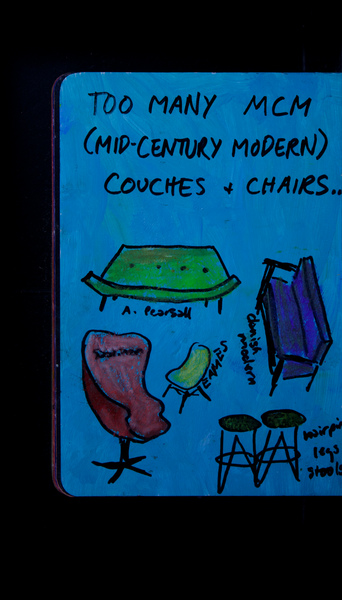 TOO MANY MCM
(MID-CENTURY MODERN)
COUCHES + CHAIRS..
A. Pearsall
danish
modern
EAMES
hairpin
legs
stools